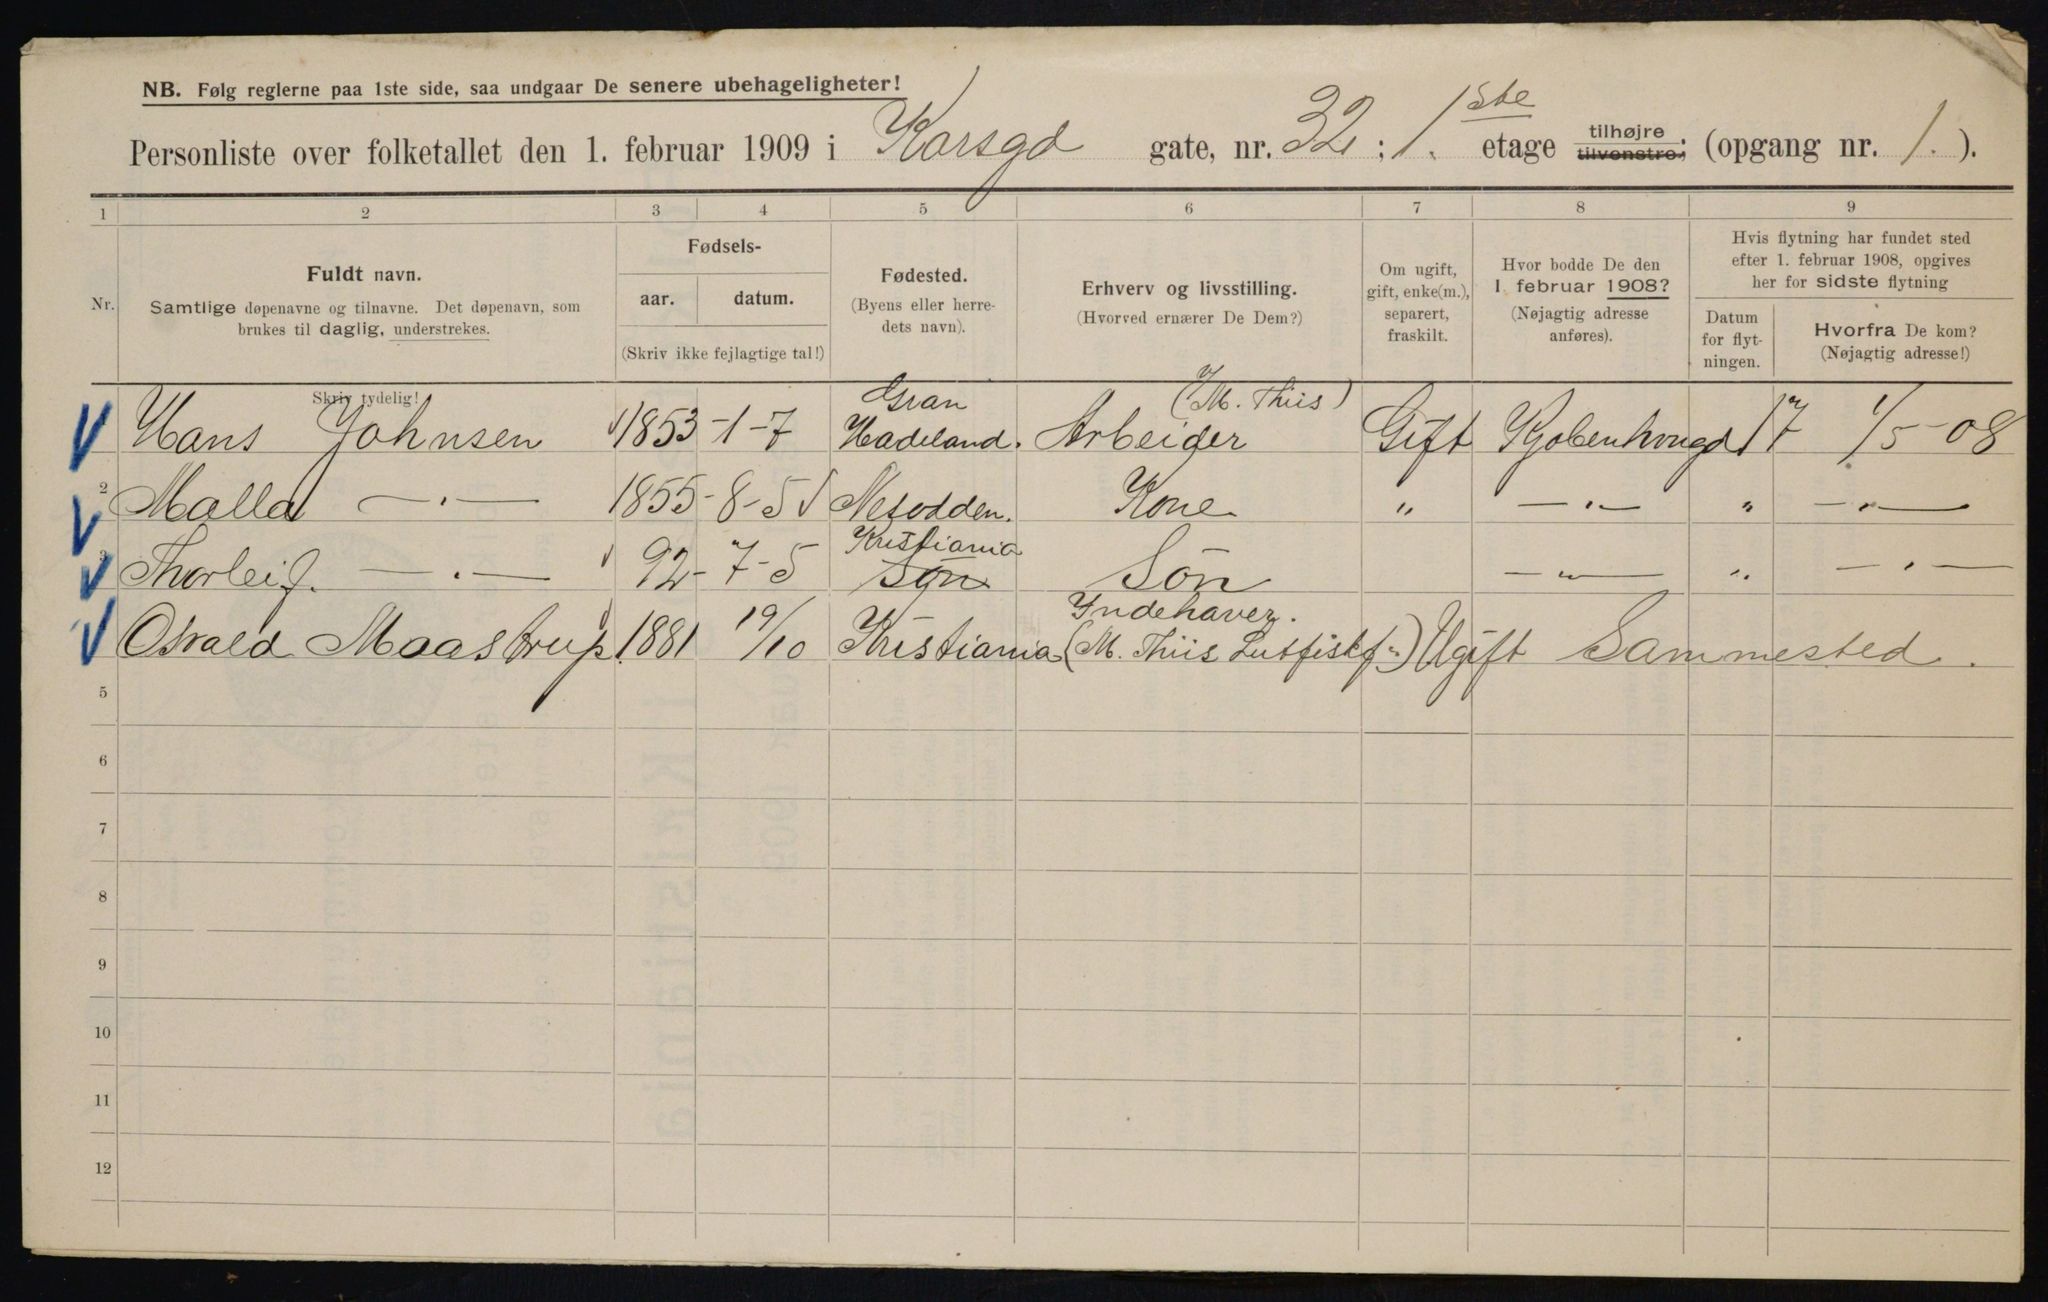 NB. Følg reglerne paa 1ste side, saa undgaar De senere ubehageligheter!
Personliste over folketallet den 1. februar 1909 i Korsgd gate, nr. 32 ; 1ste etage tilhøjre tilvenstre; (opgang nr. 1. ).
1 2 3 4 5 6 7 8 9
Nr.
Fuldt navn.
Samtlige døpenavne og tilnavne. Det døpenavn, som
brukes til daglig, understrekes.
Skriv tydelig!
Fødsels-
aar. datum.
(Skriv ikke fejlagtige tal!)
Fødested.
(Byens eller herre-
dets navn).
Erhverv og livsstilling.
(Hvorved ernærer De Dem?)
Om ugift,
gift, enke(m.),
separert,
fraskilt.
Hvor bodde De den
1. februar 1908?
(Nøjagtig adresse
anføres).
Hvis flytning har fundet sted
efter 1. februar 1908, opgives
her for sidste flytning
Datum
for flyt-
ningen.
Hvorfra De kom?
(Nøjagtig adresse!)
Gran (M. Thiis)
Hans Johnsen 1853 -1-7 Hadeland. Arbeider Gift Kjobenhvngd 17 1/5-08
2 Malla —"— 1855 -8-5 Nesodden. Kone " —"— " —"—
Kristiania
3 Thorleif. —"— 92 -7-5 Søn Søn —"— " —"—
Indehaver.
Osvald Maastrup. 1881 19/10 Kristiania (M. Thiis Lutfiskf.) Ugift Sammested.
5
6
7
8
9
10
11
12